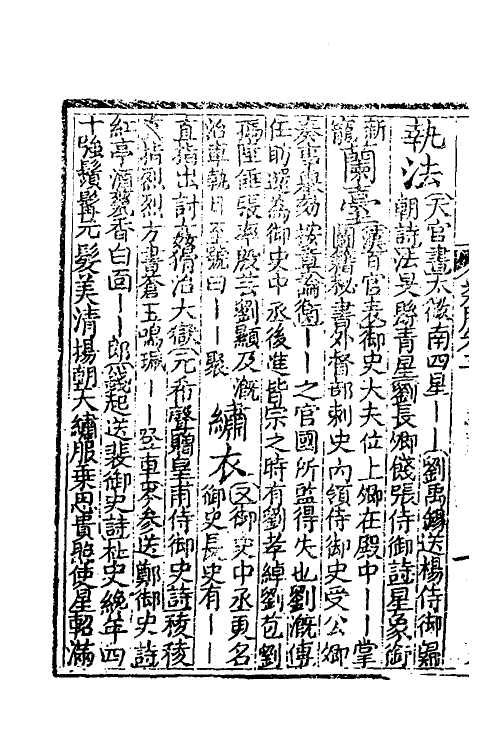 執法天官書太微南四星——劉禹錫送楊侍御歸
朝詩法是縣青星劉長卿餞張侍御詩星象銜
新寵蘭臺漢百官表御史大夫位上卿在殿中——掌
圖籍秘書外督部刺史內領侍御史受公卿
奏事舉劾按章論衡——之官國所監得失也劉溉傳
任昉遷為御史中丞後進皆宗之時有劉孝綽劉苞劉
孺陸倕張率殷芸劉顯及溉
治車執日至號曰——聚繡衣又御史中丞更名
御史長史有——
直指出討姦猾治大獄元希聲贈皇甫侍御史詩稜稜
直指烈烈方書蒼玉鳴珮——登車岑參送鄭御史詩
紅亭酒甕香白面——郎錢起送裴御史詩柱史纔年四
十強鬚髯玄髮美清揚朝天繡服乘恩貴照使星軺滿